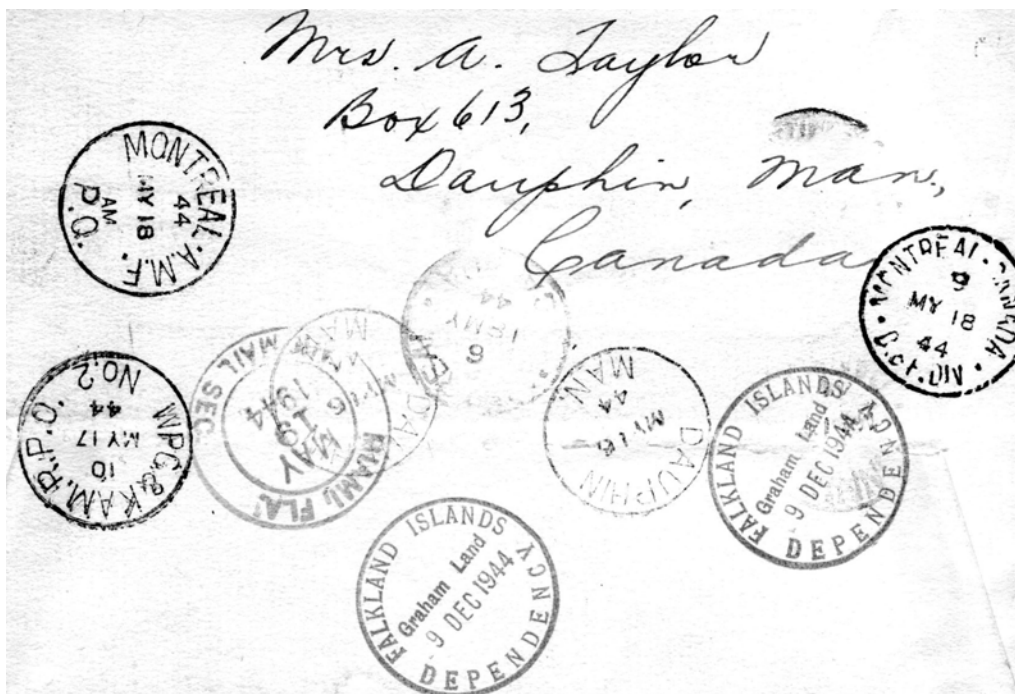 Mrs. A. Taylor
Box 613,
Dauphin, Man,
Canada
MONTREAL·A.M.F.
44
MY 18
AM
P.Q.
MONTREAL·CANADA
9
MY 18
44
DIV
WPG.& KAM.R.P.O.
10
MY 17
44
NO.2
MIAMI, FLA.
MAIL SEC.
MAY
19
1944
MAN
MY 16
18 MY
44
DAUPHIN
MY 16
44
MAN
FALKLAND ISLANDS
Graham Land
9 DEC 1944
DEPENDENCY
FALKLAND ISLANDS
Graham Land
9 DEC 1944
DEPENDENCY